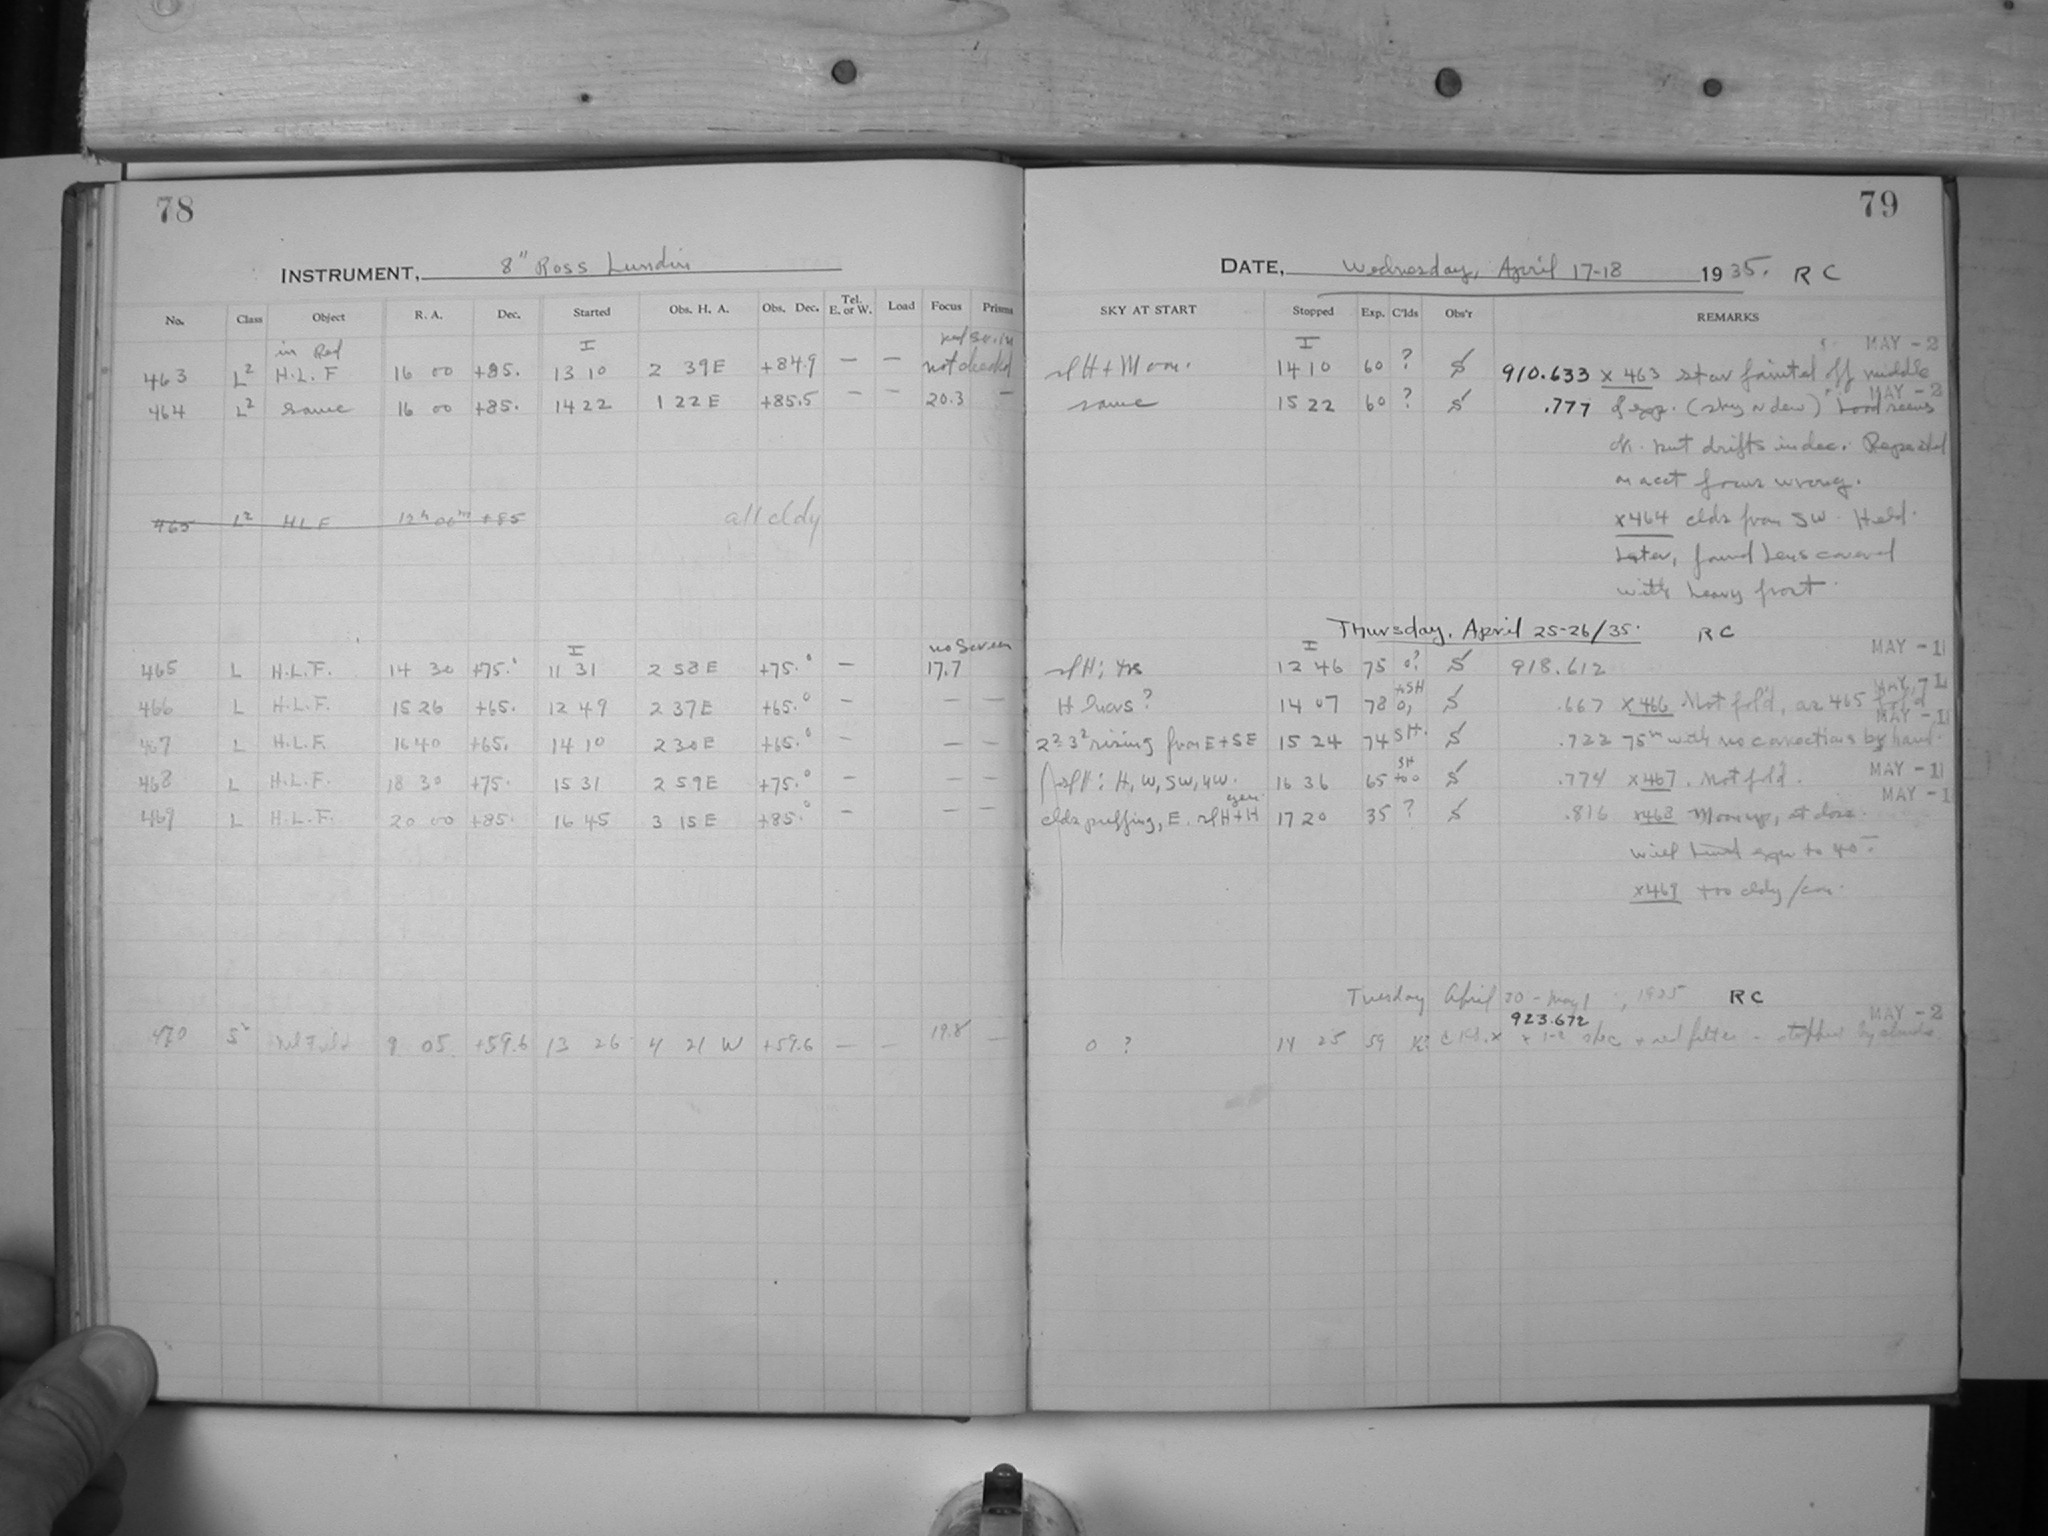 78
INSTRUMENT, 8" Ross Lundin
No. Class Object R. A. Dec. Started Obs. H. A. Obs. Dec. Tel. E. or W. Load Focus Prisms
in Red I
463 L2 H.L.F 16 00 +85. 13 10 2 39E +84.9 — — not checked
464 L2 same 16 00 +85. 14 22 1 22 E +85.5 — — 20.3 —
465 L2 HLF 12h 00m +85 all cldy
I no Screen
465 L H.L.F. 14 30 +75.° 11 31 2 58 E +75.° — 17.7
466 L H.L.F. 15 26 +65. 12 49 2 37E +65.° — — —
467 L H.L.F. 16 40 +65. 14 10 2 30 E +65.° — — —
468 L H.L.F. 18 30 +75. 15 31 2 59E +75.° — — —
469 L H.L.F. 20 00 +85. 16 45 3 15 E +85.° — — —
470 S2 9 05 +59.6 13 26 4 21 W +59.6 — — 19.8 —
79
DATE, Wednesday, April 17-18 1935. R C
SKY AT START Stopped Exp. C'lds Obs'r REMARKS
I MAY - 2
slH + Moon. 14 10 60 ? 910.633 x 463 star fainted off middle
MAY - 2
same 15 22 60 ? .777 of exp. (sky n dew)
ok. but drifts in dec. Repeated
on acct focus wrong.
x464 clds from SW. Held.
Later, found lens covered
with heavy frost.
Thursday, April 25-26/35. R C
I MAY - 1
slH; 12 46 75 0? 918.612
H hurs? 14 07 78 0, .667 x466 Not fol'd, as 465 fol'd
MAY - 1
rising from E + SE 15 24 74 SH. .722 75m with no corrections by hand.
MAY - 1
slH: H, W, SW, NW. 16 36 65 .774 x467. Not fol'd.
MAY - 1
clds puffing, E. slH+H 17 20 35 ? .816 x468 Moon up, at close.
will limit expn to 40
x469 too cldy /con.
Tuesday April 30 - May 1, 1935 R C
923.672 MAY - 2
0 ? 14 25 59 + red filter - stopped by clouds